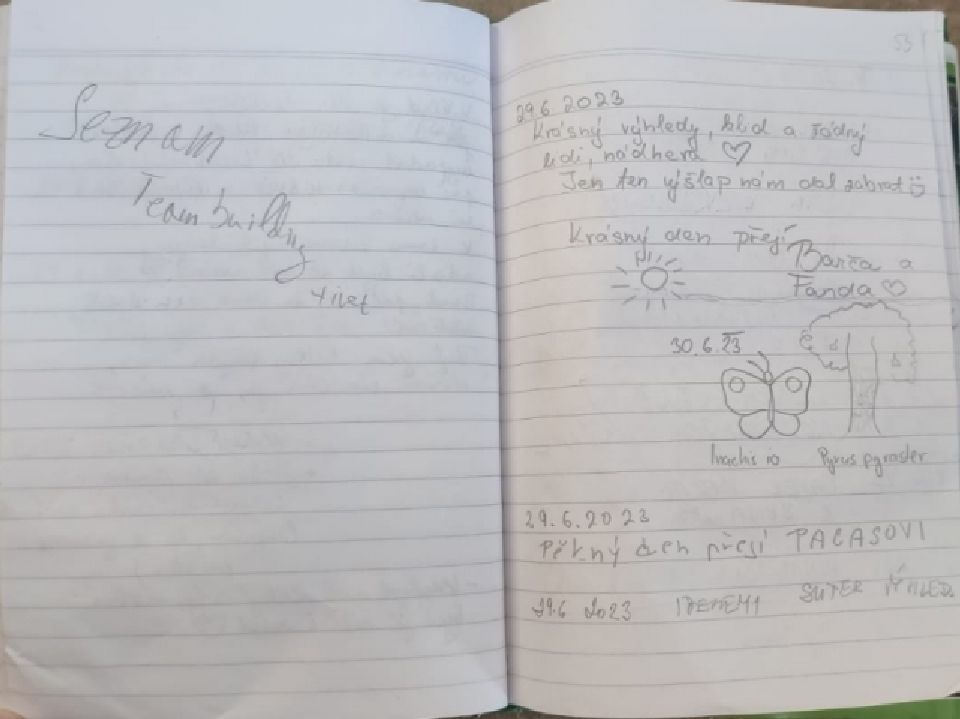 Seznam
Teambuilding
53
29.6.2023
Krásný výhledy, klid a žádný
lidi, nádhera ♡
Jen ten výšlap nám dal zabrat
Krásný den přejí
Barča a
Fanda ♡
30.6.23
Inachis io Pyrus pyraster
29.6.2023
Pěkný den přejí PACASOVI
29.6 2023 SUPER VÝHLED